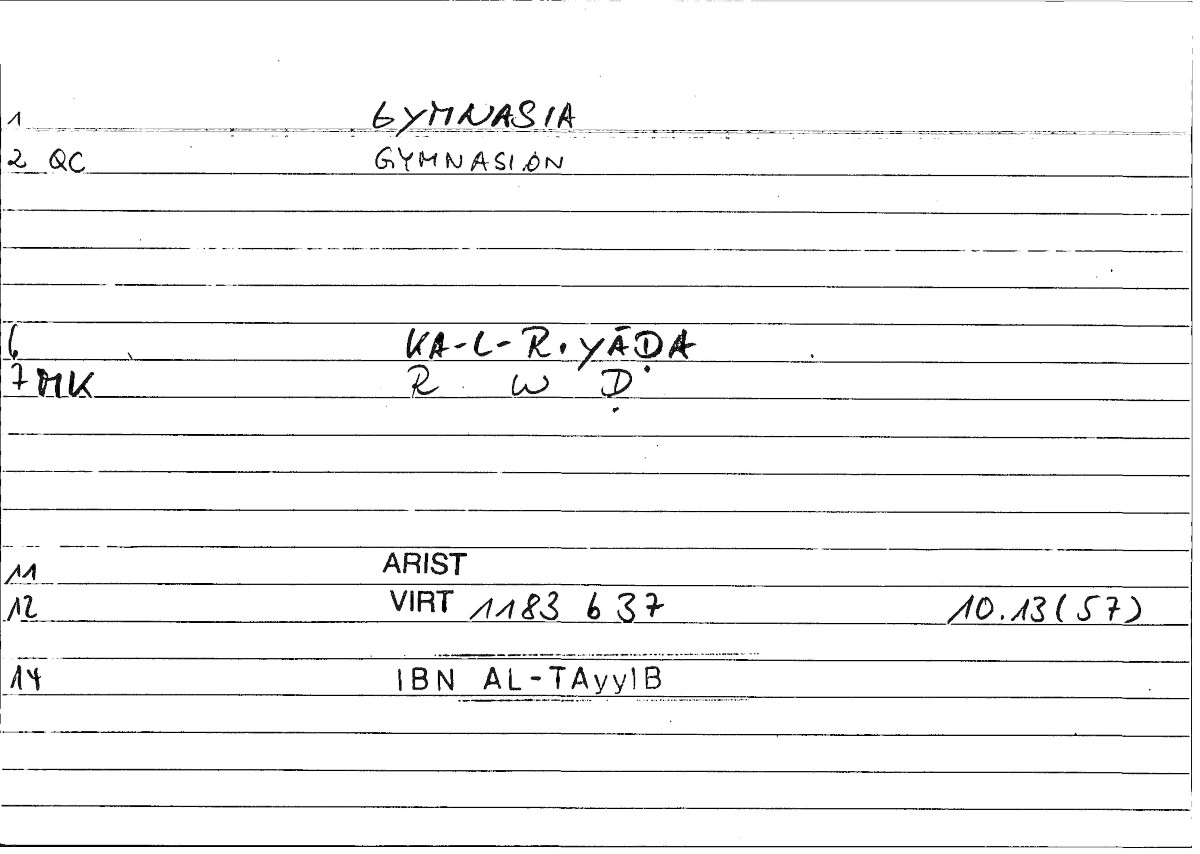 1 GYMNASIA
2 QC GYMNASION
6 KA-L-R.YĀḌA
7 MK R W Ḍ
11 ARIST
12 VIRT 1183 b 37 10.13(57)
14 IBN AL-TAyyIB